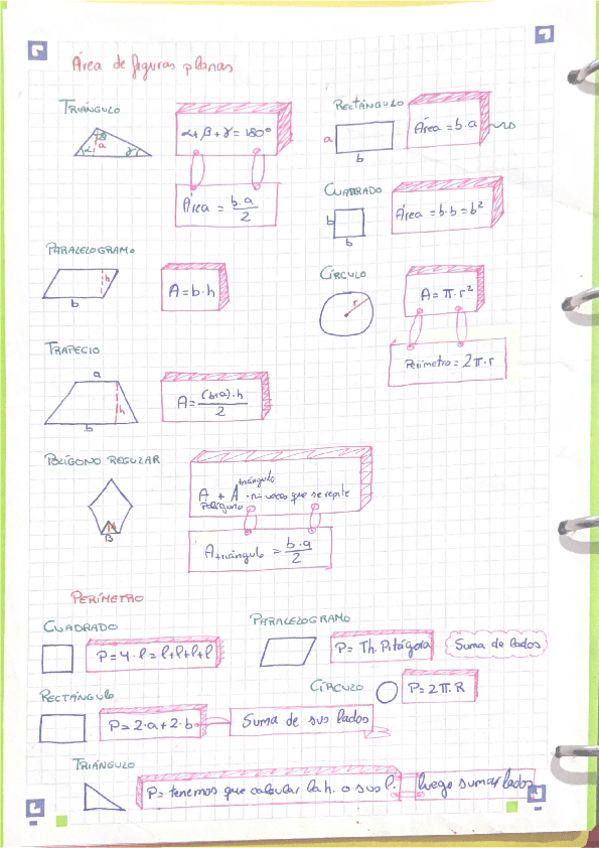 Área de figuras planas
TRIÁNGULO
α+β+γ=180º
β
α
a
γ
Área = b·a/2
RECTÁNGULO
a
b
Área = b·a
CUADRADO
b
b
Área = b·b = b²
PARALELOGRAMO
h
b
A = b·h
CÍRCULO
r
A = π·r²
Perímetro = 2π·r
TRAPECIO
a
h
b
A = (b+a)·h/2
POLÍGONO REGULAR
B
A polígono + A triángulo · nº veces que se repite
A triángulo = b·a/2
PERÍMETRO
CUADRADO
P = 4·l = l+l+l+l
PARALELOGRAMO
P = Th. Pitágora
Suma de lados
RECTÁNGULO
P = 2·a+2·b
Suma de sus lados
CÍRCULO
P = 2π.R
TRIÁNGULO
P = tenemos que calcular la h. o sus l.
luego sumar lados